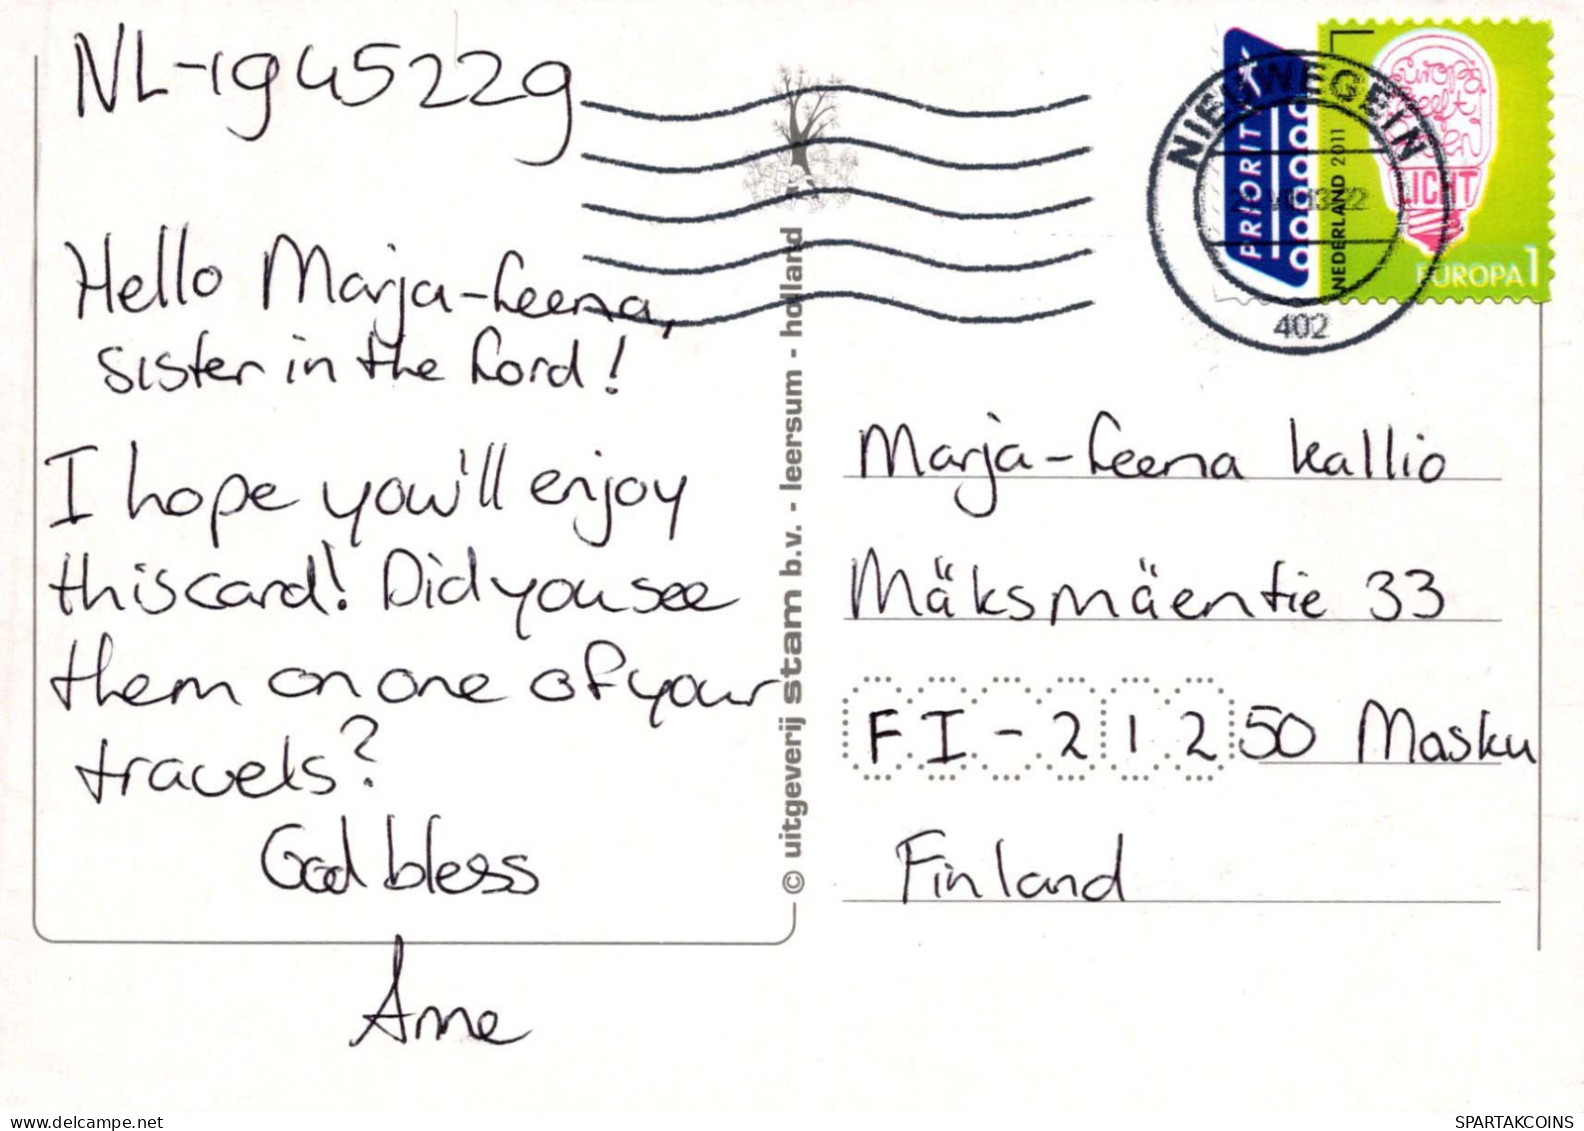 NL-1945229
Hello Marja-Leena,
sister in the Lord!
I hope you'll enjoy
this card! Did you see
them on one of your
travels?
God bless
Anne
© uitgeverij stam b.v. - leersum - holland
PRIORITY
NEDERLAND 2011
LICHT
EUROPA 1
NIEUWEGEIN
402
Marja-Leena Kallio
Mäksmäentie 33
FI-21250 Masku
Finland
www.delcampe.net
SPARTAKCOINS